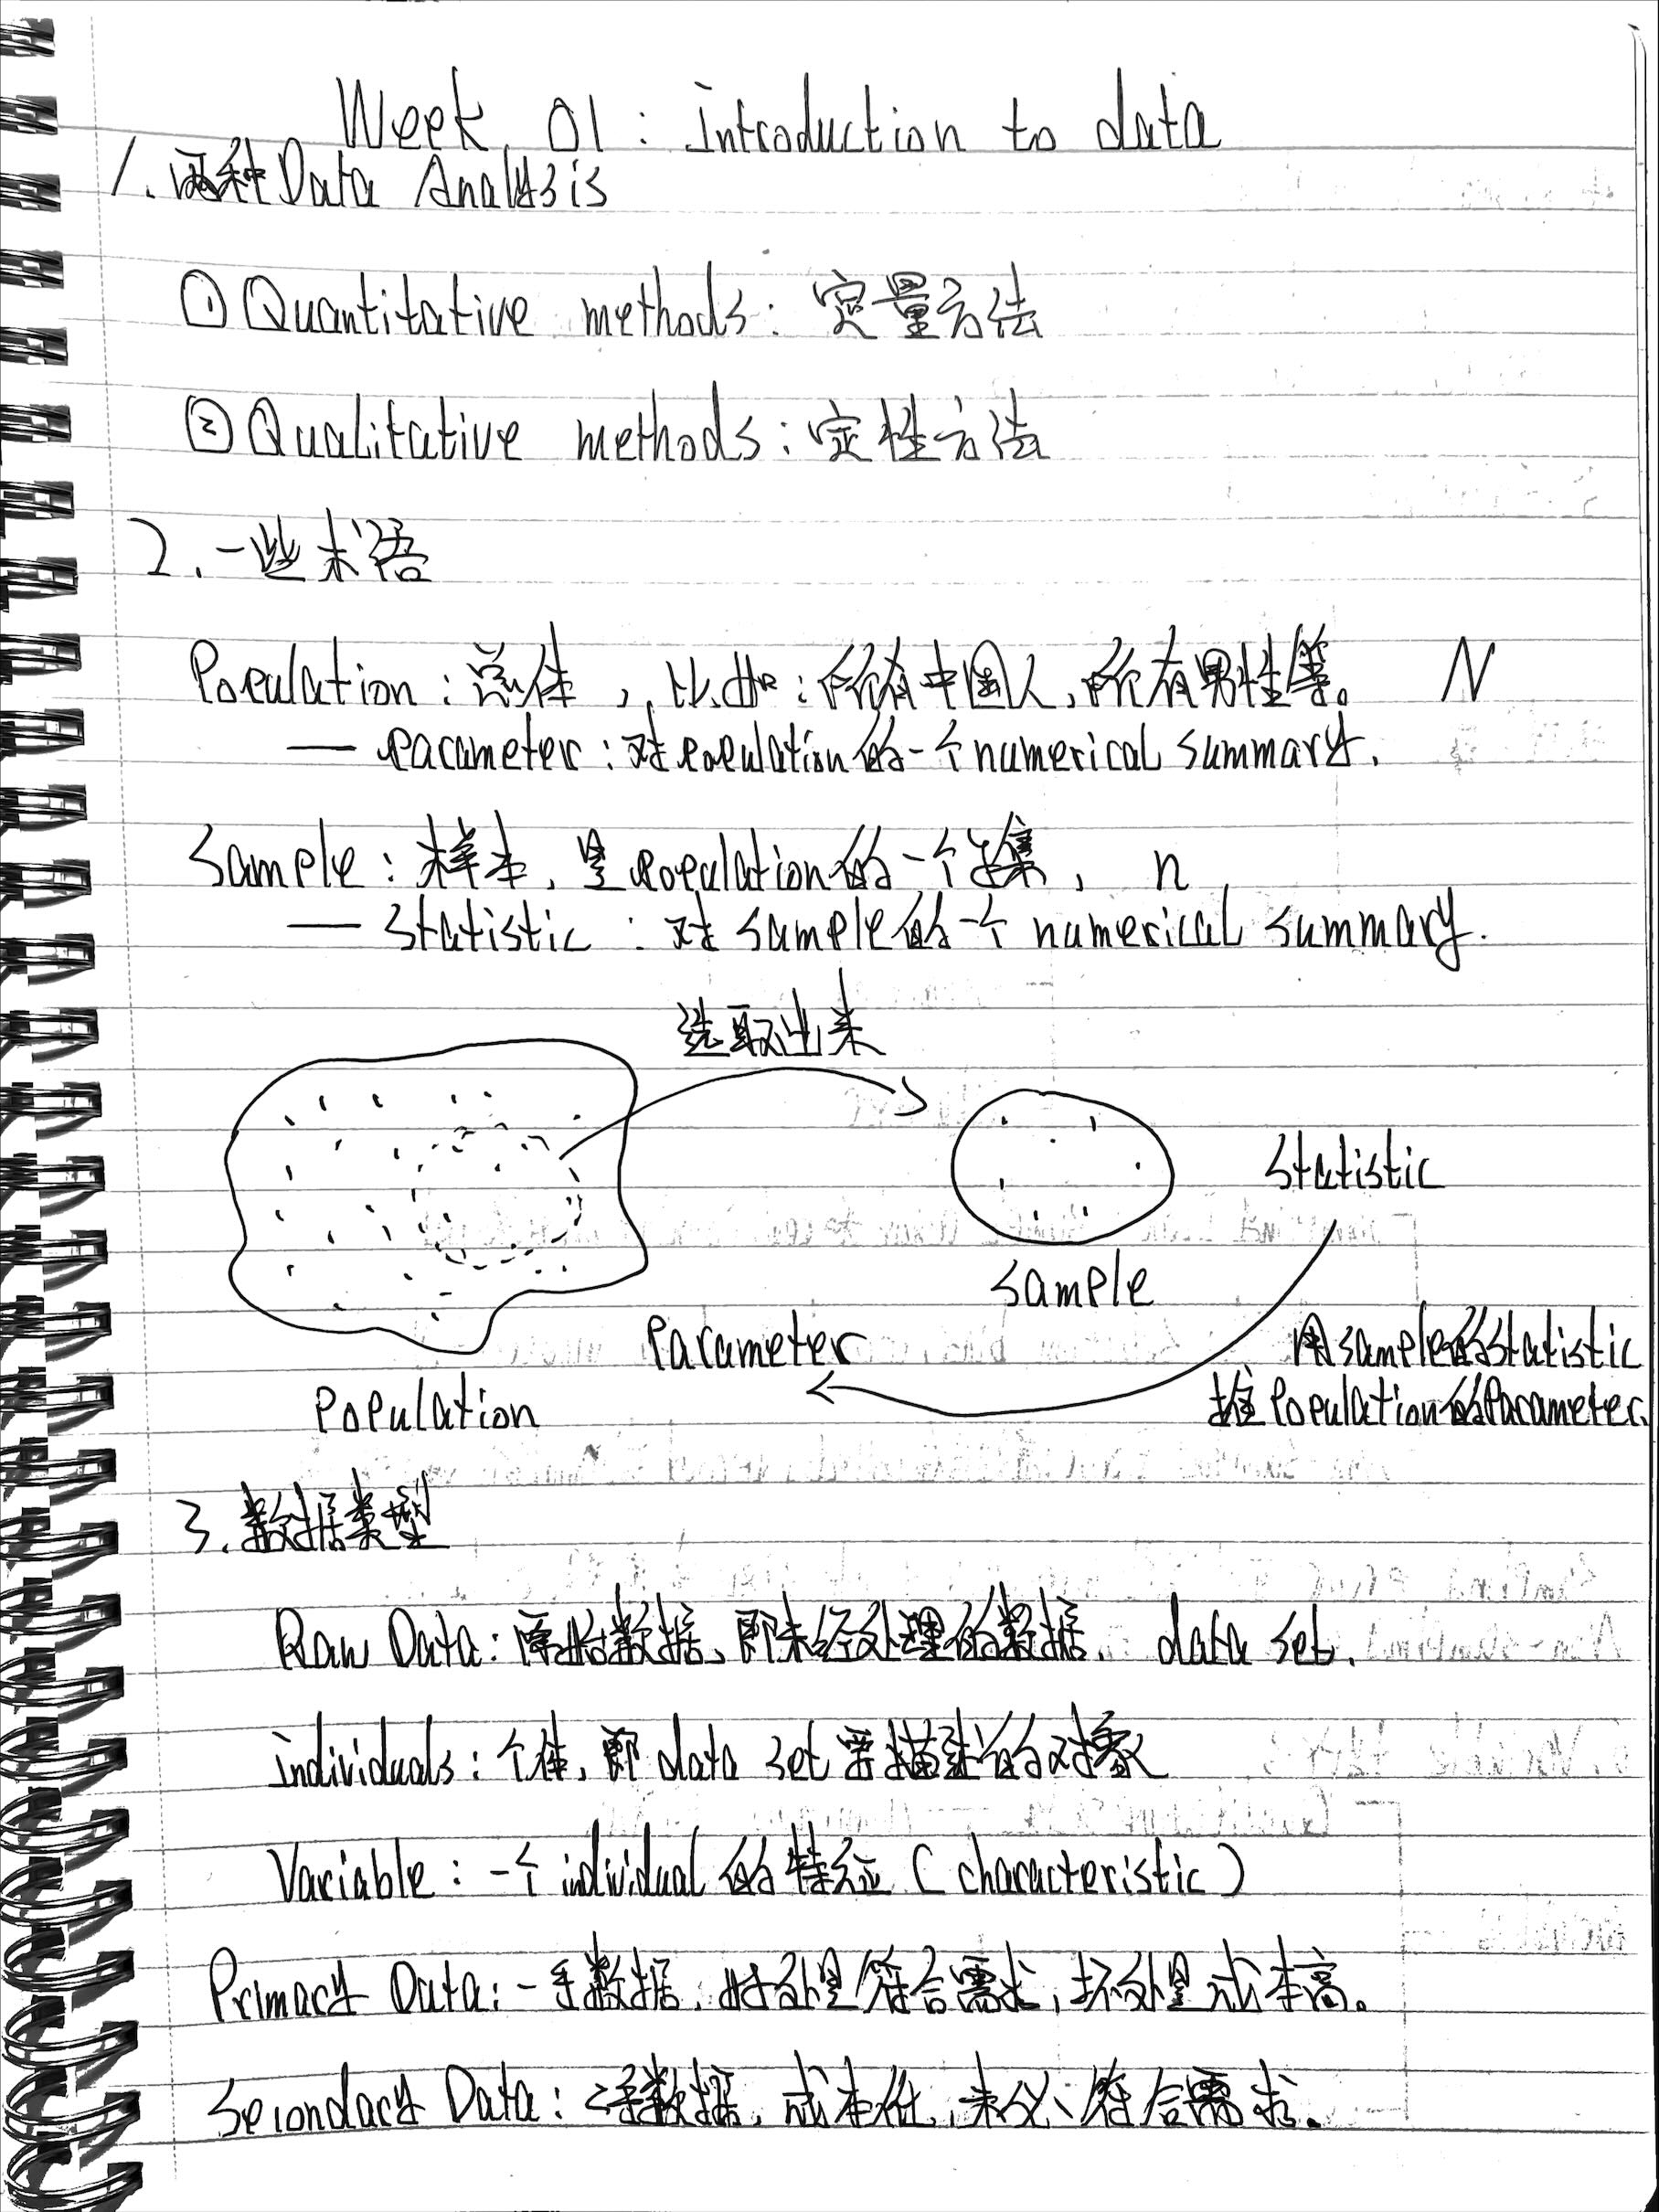 Week 01 : introduction to data
1. 两种 Data Analysis
① Quantitative methods: 定量方法
② Qualitative methods: 定性方法
2. 一些术语
Population : 总体, 比如: 所有中国人, 所有男性等。 N
— Parameter : 对population的一个numerical summary.
Sample : 样本, 是population的一个子集, n
— Statistic : 对 sample的一个 numerical summary.
选取出来
Statistic
Sample
Parameter
用sample的statistic
推Population的Parameter.
Population
3. 数据类型
Raw Data: 原始数据, 即未经处理的数据. data set.
individuals: 个体, 即 data set 所描述的对象
Variable: 一个 individual 的特征 ( characteristic )
Primary Data: 一手数据, 好处是符合需求, 坏处是成本高。
Secondary Data: 二手数据, 成本低, 未必符合需求.